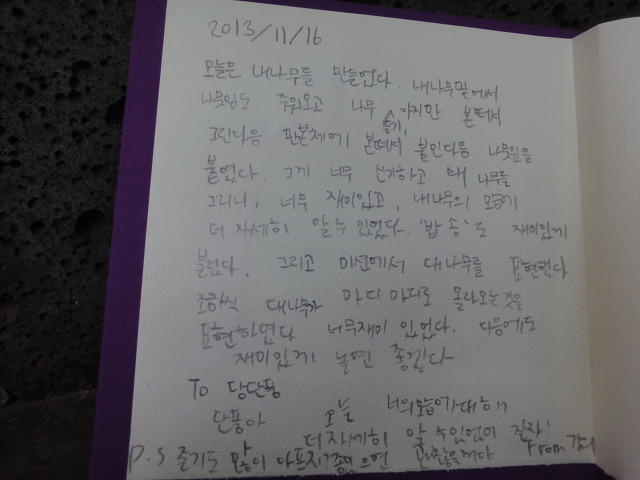 2013/11/16
오늘은 내나무를 만들었다. 내나무밑에서
나뭇잎도 주워오고 나무 줄기, 가지만 본떠서
그린다음 판본체에 본떠서 붙인다음 나뭇잎을
붙였다. 그게 너무 신기하고 내 나무를
그리니, 너무 재미있고, 내나무의 모습이
더 자세히 알 수 있었다. '밥 송'도 재미있게
불렀다. 그리고 미션에서 대나무를 표현했다.
조금씩 대나무가 마디 마디로 올라오는것을
표현하였다 너무재미 있었다. 다음에도
재미있게 놀면 좋겠다
To 당단풍
단풍아 오늘 너의모습에대해
더자세히 알 수있었어 잘자!
P.S 줄기도 많이 아프지? 좀있으면 괜찮을꺼야 From